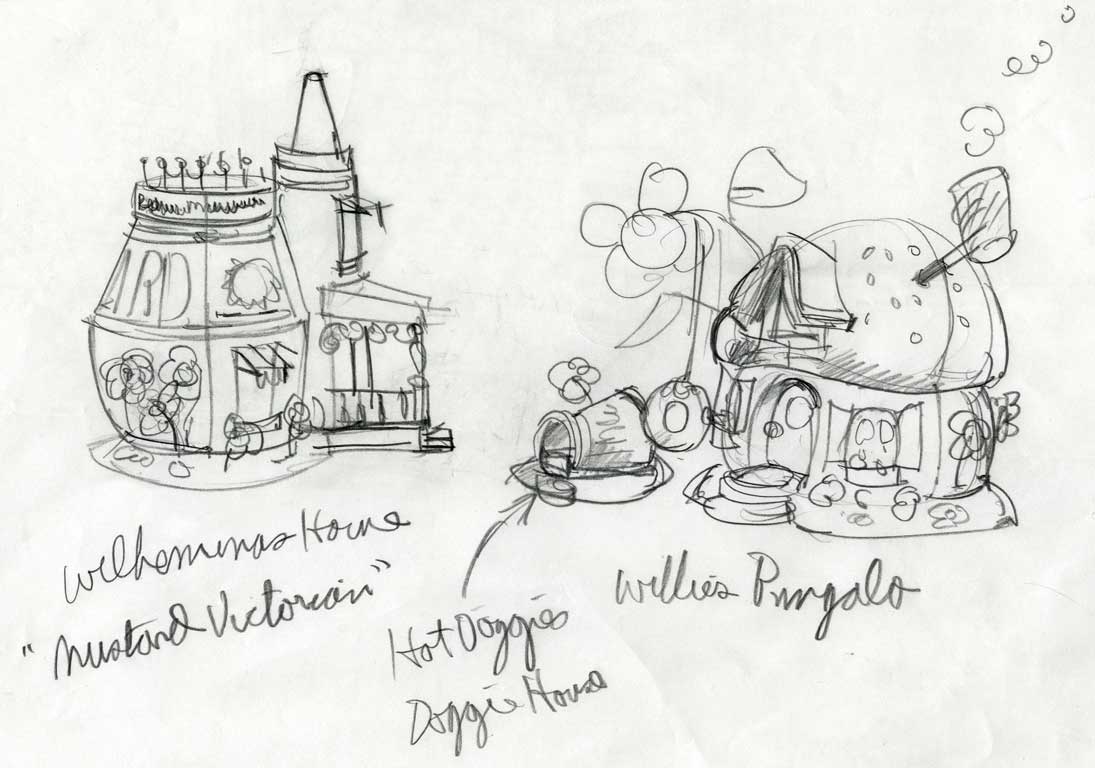 ARD
Wilheminas Home
"Mustard Victorian"
Hot Doggies
Doggie House
Willies Bungalo